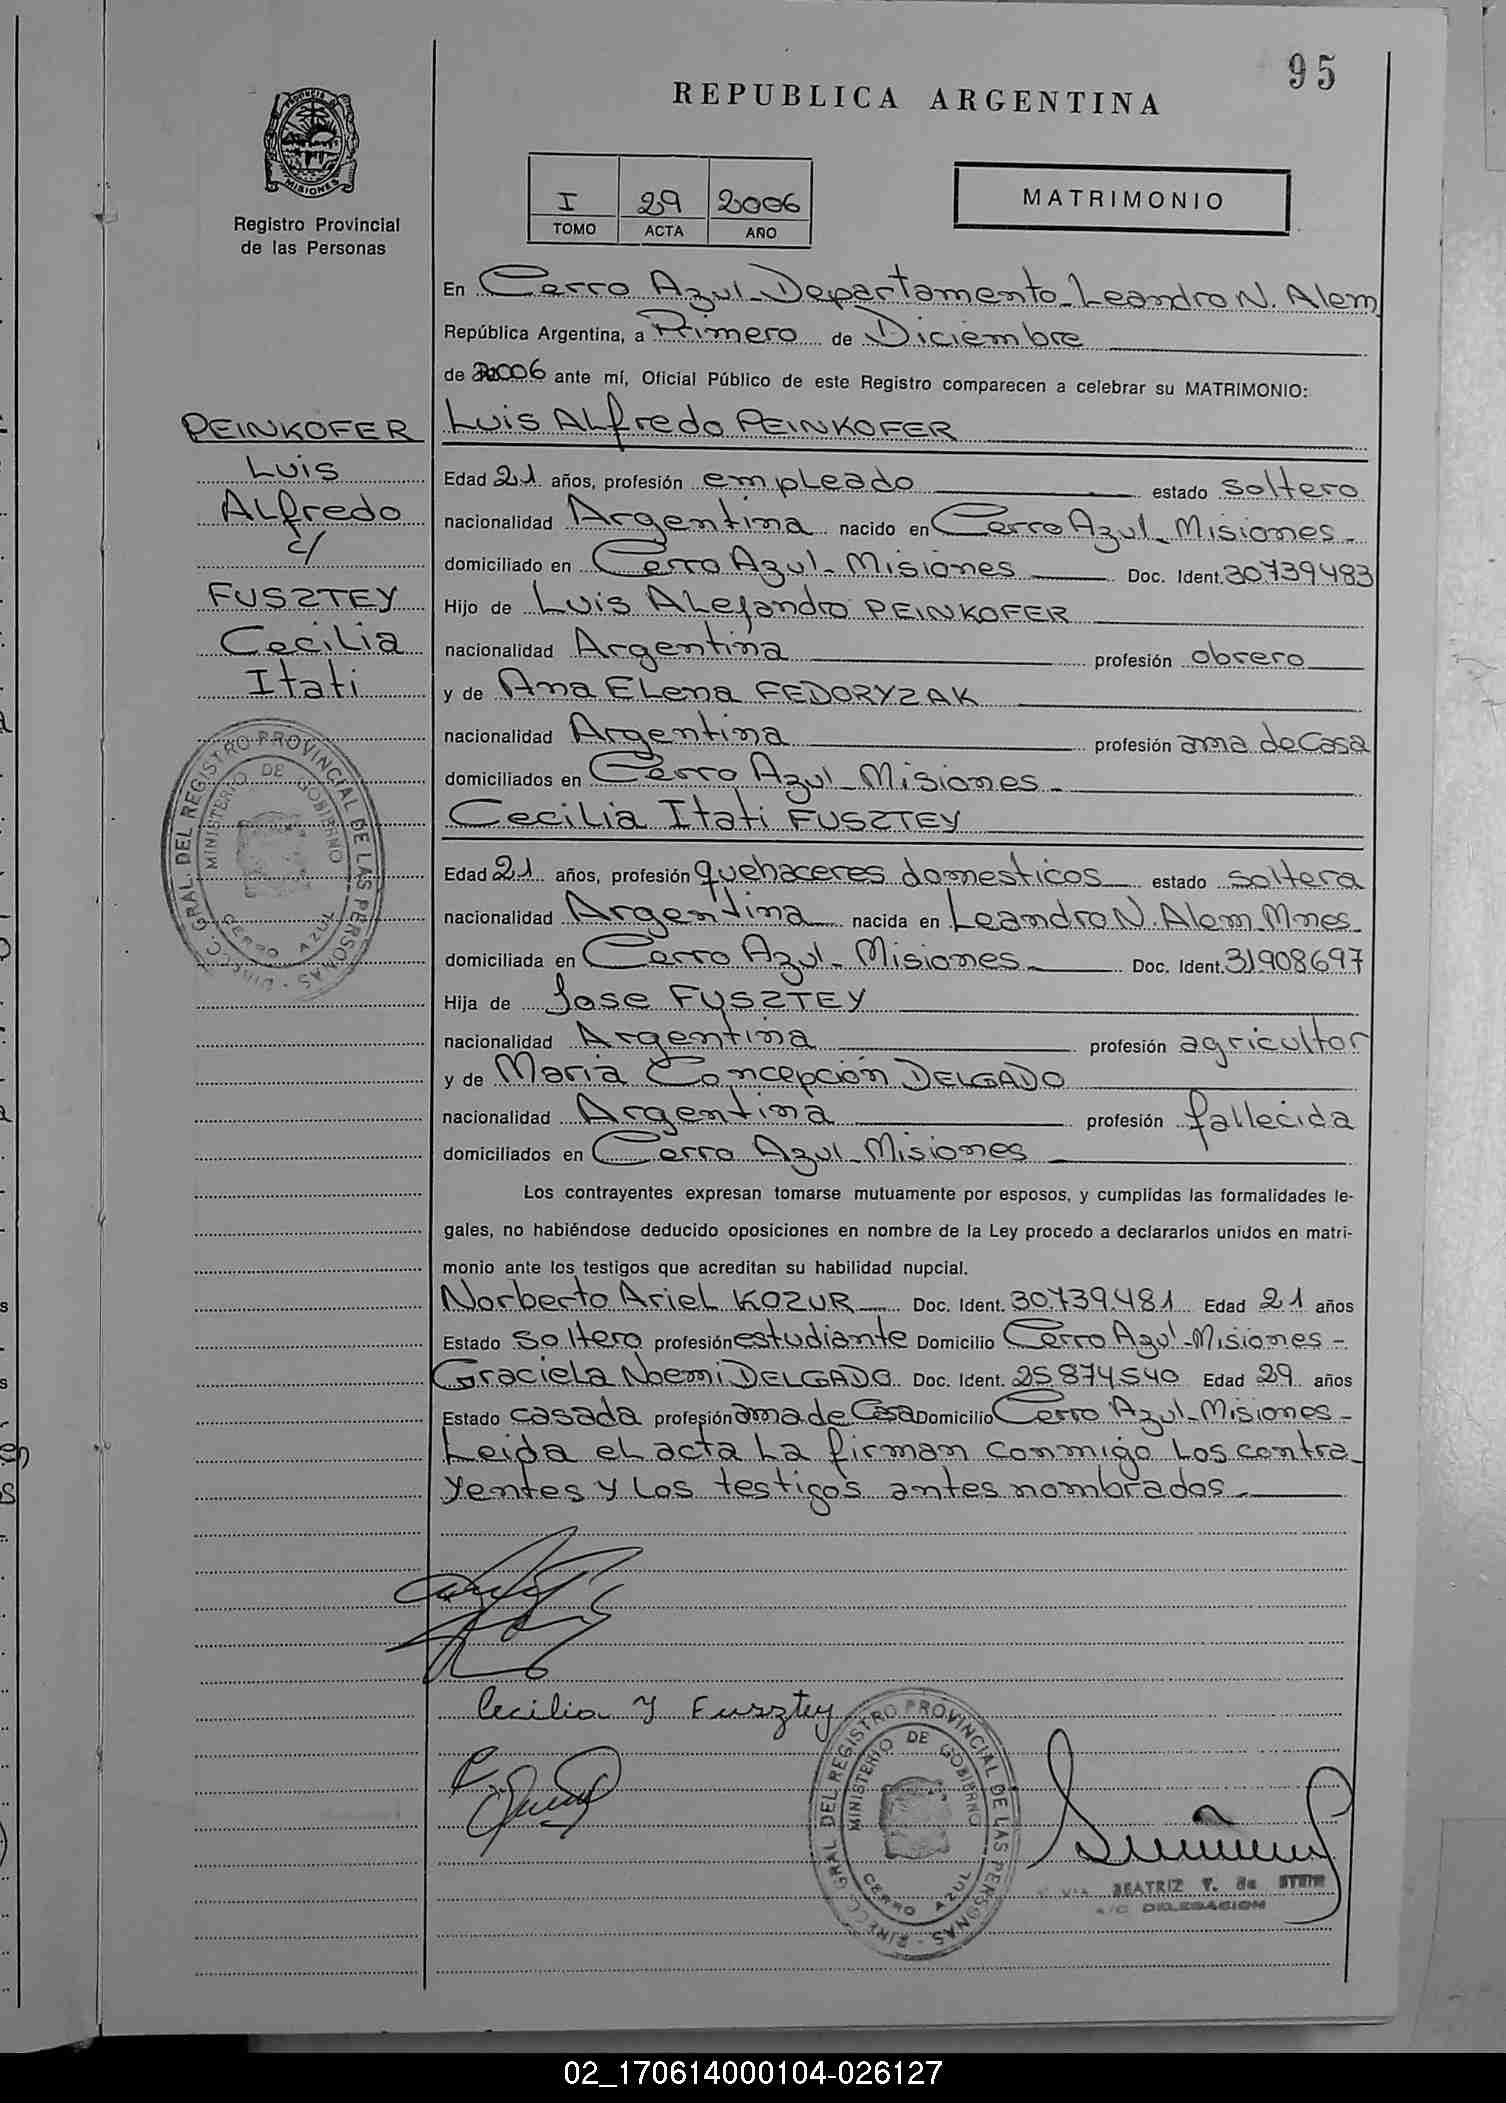 95
REPUBLICA ARGENTINA
PROVINCIA DE
MISIONES
Registro Provincial
de las Personas
I 29 2006
TOMO ACTA AÑO
MATRIMONIO
En Cerro Azul-Departamento-Leandro N. Alem
República Argentina, a Primero de Diciembre
de 2006 ante mí, Oficial Público de este Registro comparecen a celebrar su MATRIMONIO:
PEINKOFER
Luis
Alfredo
c/
FUSZTEY
Cecilia
Itati
Luis Alfredo PEINKOFER
Edad 21 años, profesión empleado estado soltero
nacionalidad Argentina nacido en Cerro Azul-Misiones-
domiciliado en Cerro Azul-Misiones Doc. Ident. 30739483
Hijo de Luis Alejandro PEINKOFER
nacionalidad Argentina profesión obrero
y de Ana Elena FEDORYZAK
nacionalidad Argentina profesión ama de Casa
domiciliados en Cerro Azul-Misiones-
Cecilia Itati FUSZTEY
Edad 21 años, profesión quehaceres domesticos estado soltera
nacionalidad Argentina nacida en Leandro N. Alem-Mnes-
domiciliada en Cerro Azul-Misiones Doc. Ident. 31908697
Hija de Jose FUSZTEY
nacionalidad Argentina profesión agricultor
y de Maria Concepción DELGADO
nacionalidad Argentina profesión fallecida
domiciliados en Cerro Azul-Misiones
Los contrayentes expresan tomarse mutuamente por esposos, y cumplidas las formalidades le-
gales, no habiéndose deducido oposiciones en nombre de la Ley procedo a declararlos unidos en matri-
monio ante los testigos que acreditan su habilidad nupcial.
Norberto Ariel KOZUR Doc. Ident. 30.739.481 Edad 21 años
Estado soltero profesión estudiante Domicilio Cerro Azul-Misiones-
Graciela Noemi DELGADO Doc. Ident. 25.874.540 Edad 29 años
Estado casada profesión ama de Casa Domicilio Cerro Azul-Misiones-
Leida el acta la firman conmigo los contra-
yentes y los testigos antes nombrados.
DIRECC. GRAL. DEL REGISTRO PROVINCIAL DE LAS PERSONAS
MINISTERIO DE GOBIERNO
CERRO AZUL
Cecilia Y Fusztey
DIRECC. GRAL DEL REGISTRO PROVINCIAL DE LAS PERSONAS
MINISTERIO DE GOBIERNO
CERRO AZUL
BEATRIZ V. de STEIN
A/C DELEGACION
02_170614000104-026127